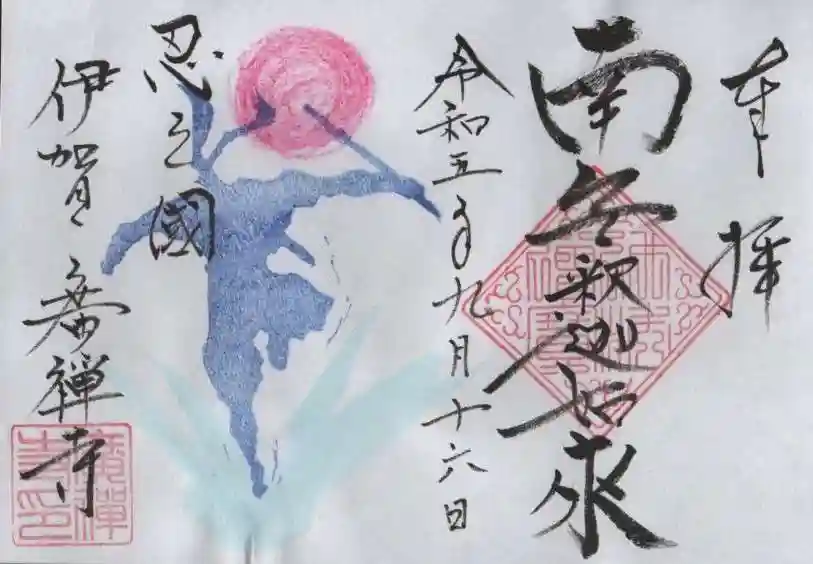 奉拝
南無釈迦如来
令和五年九月十六日
忍之國
伊賀 廣禅寺
廣禅寺印